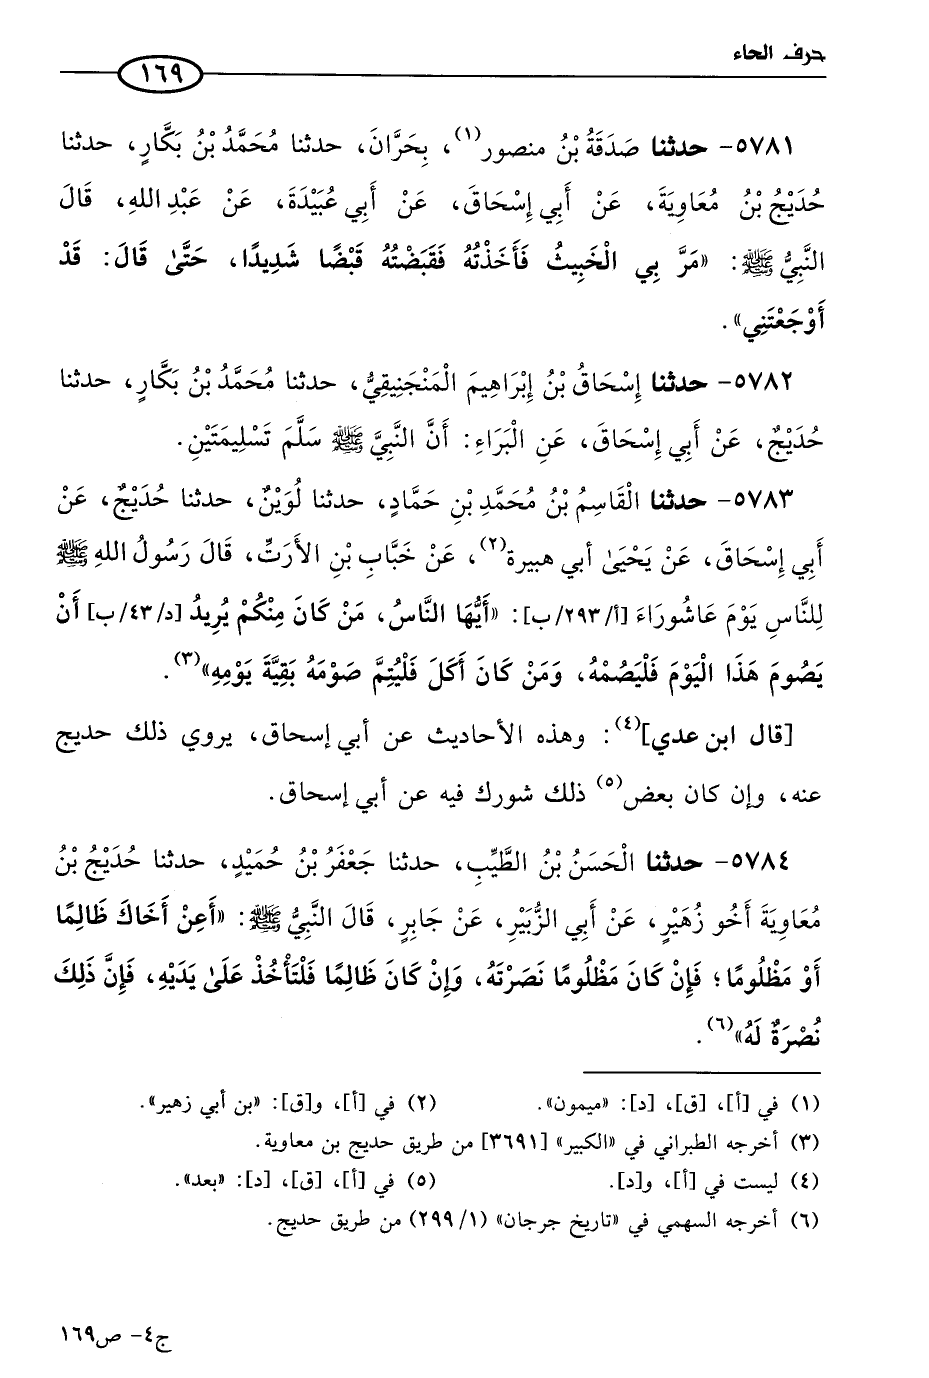 حرف الحاء
١٦٩
٥٧٨١- حدثنا صَدَقَةُ بْنُ منصور(١)، بِحَرَّانَ، حدثنا مُحَمَّدُ بْنُ بَكَّارٍ، حدثنا
حُدَيْجُ بْنُ مُعَاوِيَةَ، عَنْ أَبِي إِسْحَاقَ، عَنْ أَبِي عُبَيْدَةَ، عَنْ عَبْدِ اللهِ، قَالَ
النَّبِيُّ ﷺ: «مَرَّ بِي الْخَبِيثُ فَأَخَذْتُهُ فَقَبَضْتُهُ قَبْضًا شَدِيدًا، حَتَّىٰ قَالَ: قَدْ
أَوْجَعْتَنِي».
٥٧٨٢- حدثنا إِسْحَاقُ بْنُ إِبْرَاهِيمَ الْمَنْجَنِيقِيُّ، حدثنا مُحَمَّدُ بْنُ بَكَّارٍ، حدثنا
حُدَيْجٌ، عَنْ أَبِي إِسْحَاقَ، عَنِ الْبَرَاءِ: أَنَّ النَّبِيَّ ﷺ سَلَّمَ تَسْلِيمَتَيْنِ.
٥٧٨٣- حدثنا الْقَاسِمُ بْنُ مُحَمَّدِ بْنِ حَمَّادٍ، حدثنا لُوَيْنٌ، حدثنا حُدَيْجٌ، عَنْ
أَبِي إِسْحَاقَ، عَنْ يَحْيَىٰ أبي هبيرة(٢)، عَنْ خَبَّابِ بْنِ الأَرَتِّ، قَالَ رَسُولُ اللهِ ﷺ
لِلنَّاسِ يَوْمَ عَاشُورَاءَ [أ/٢٩٣/ب]: «أَيُّهَا النَّاسُ، مَنْ كَانَ مِنْكُمْ يُرِيدُ [د/٤٣/ب] أَنْ
يَصُومَ هَذَا الْيَوْمَ فَلْيَصُمْهُ، وَمَنْ كَانَ أَكَلَ فَلْيُتِمَّ صَوْمَهُ بَقِيَّةَ يَوْمِهِ»(٣).
[قال ابن عدي](٤): وهذه الأحاديث عن أبي إسحاق، يروي ذلك حديج
عنه، وإن كان بعض(٥) ذلك شورك فيه عن أبي إسحاق.
٥٧٨٤- حدثنا الْحَسَنُ بْنُ الطَّيِّبِ، حدثنا جَعْفَرُ بْنُ حُمَيْدٍ، حدثنا حُدَيْجُ بْنُ
مُعَاوِيَةَ أَخُو زُهَيْرٍ، عَنْ أَبِي الزُّبَيْرِ، عَنْ جَابِرٍ، قَالَ النَّبِيُّ ﷺ: «أَعِنْ أَخَاكَ ظَالِمًا
أَوْ مَظْلُومًا؛ فَإِنْ كَانَ مَظْلُومًا نَصَرْتَهُ، وَإِنْ كَانَ ظَالِمًا فَلْتَأْخُذْ عَلَىٰ يَدَيْهِ، فَإِنَّ ذَلِكَ
نُصْرَةٌ لَهُ»(٦).
(١) في [أ]، [ق]، [د]: «ميمون». (٢) في [أ]، و[ق]: «بن أبي زهير».
(٣) أخرجه الطبراني في «الكبير» [٣٦٩١] من طريق حديج بن معاوية.
(٤) ليست في [أ]، و[د]. (٥) في [أ]، [ق]، [د]: «بعد».
(٦) أخرجه السهمي في «تاريخ جرجان» (١/ ٢٩٩) من طريق حديج.
ج٤- ص١٦٩